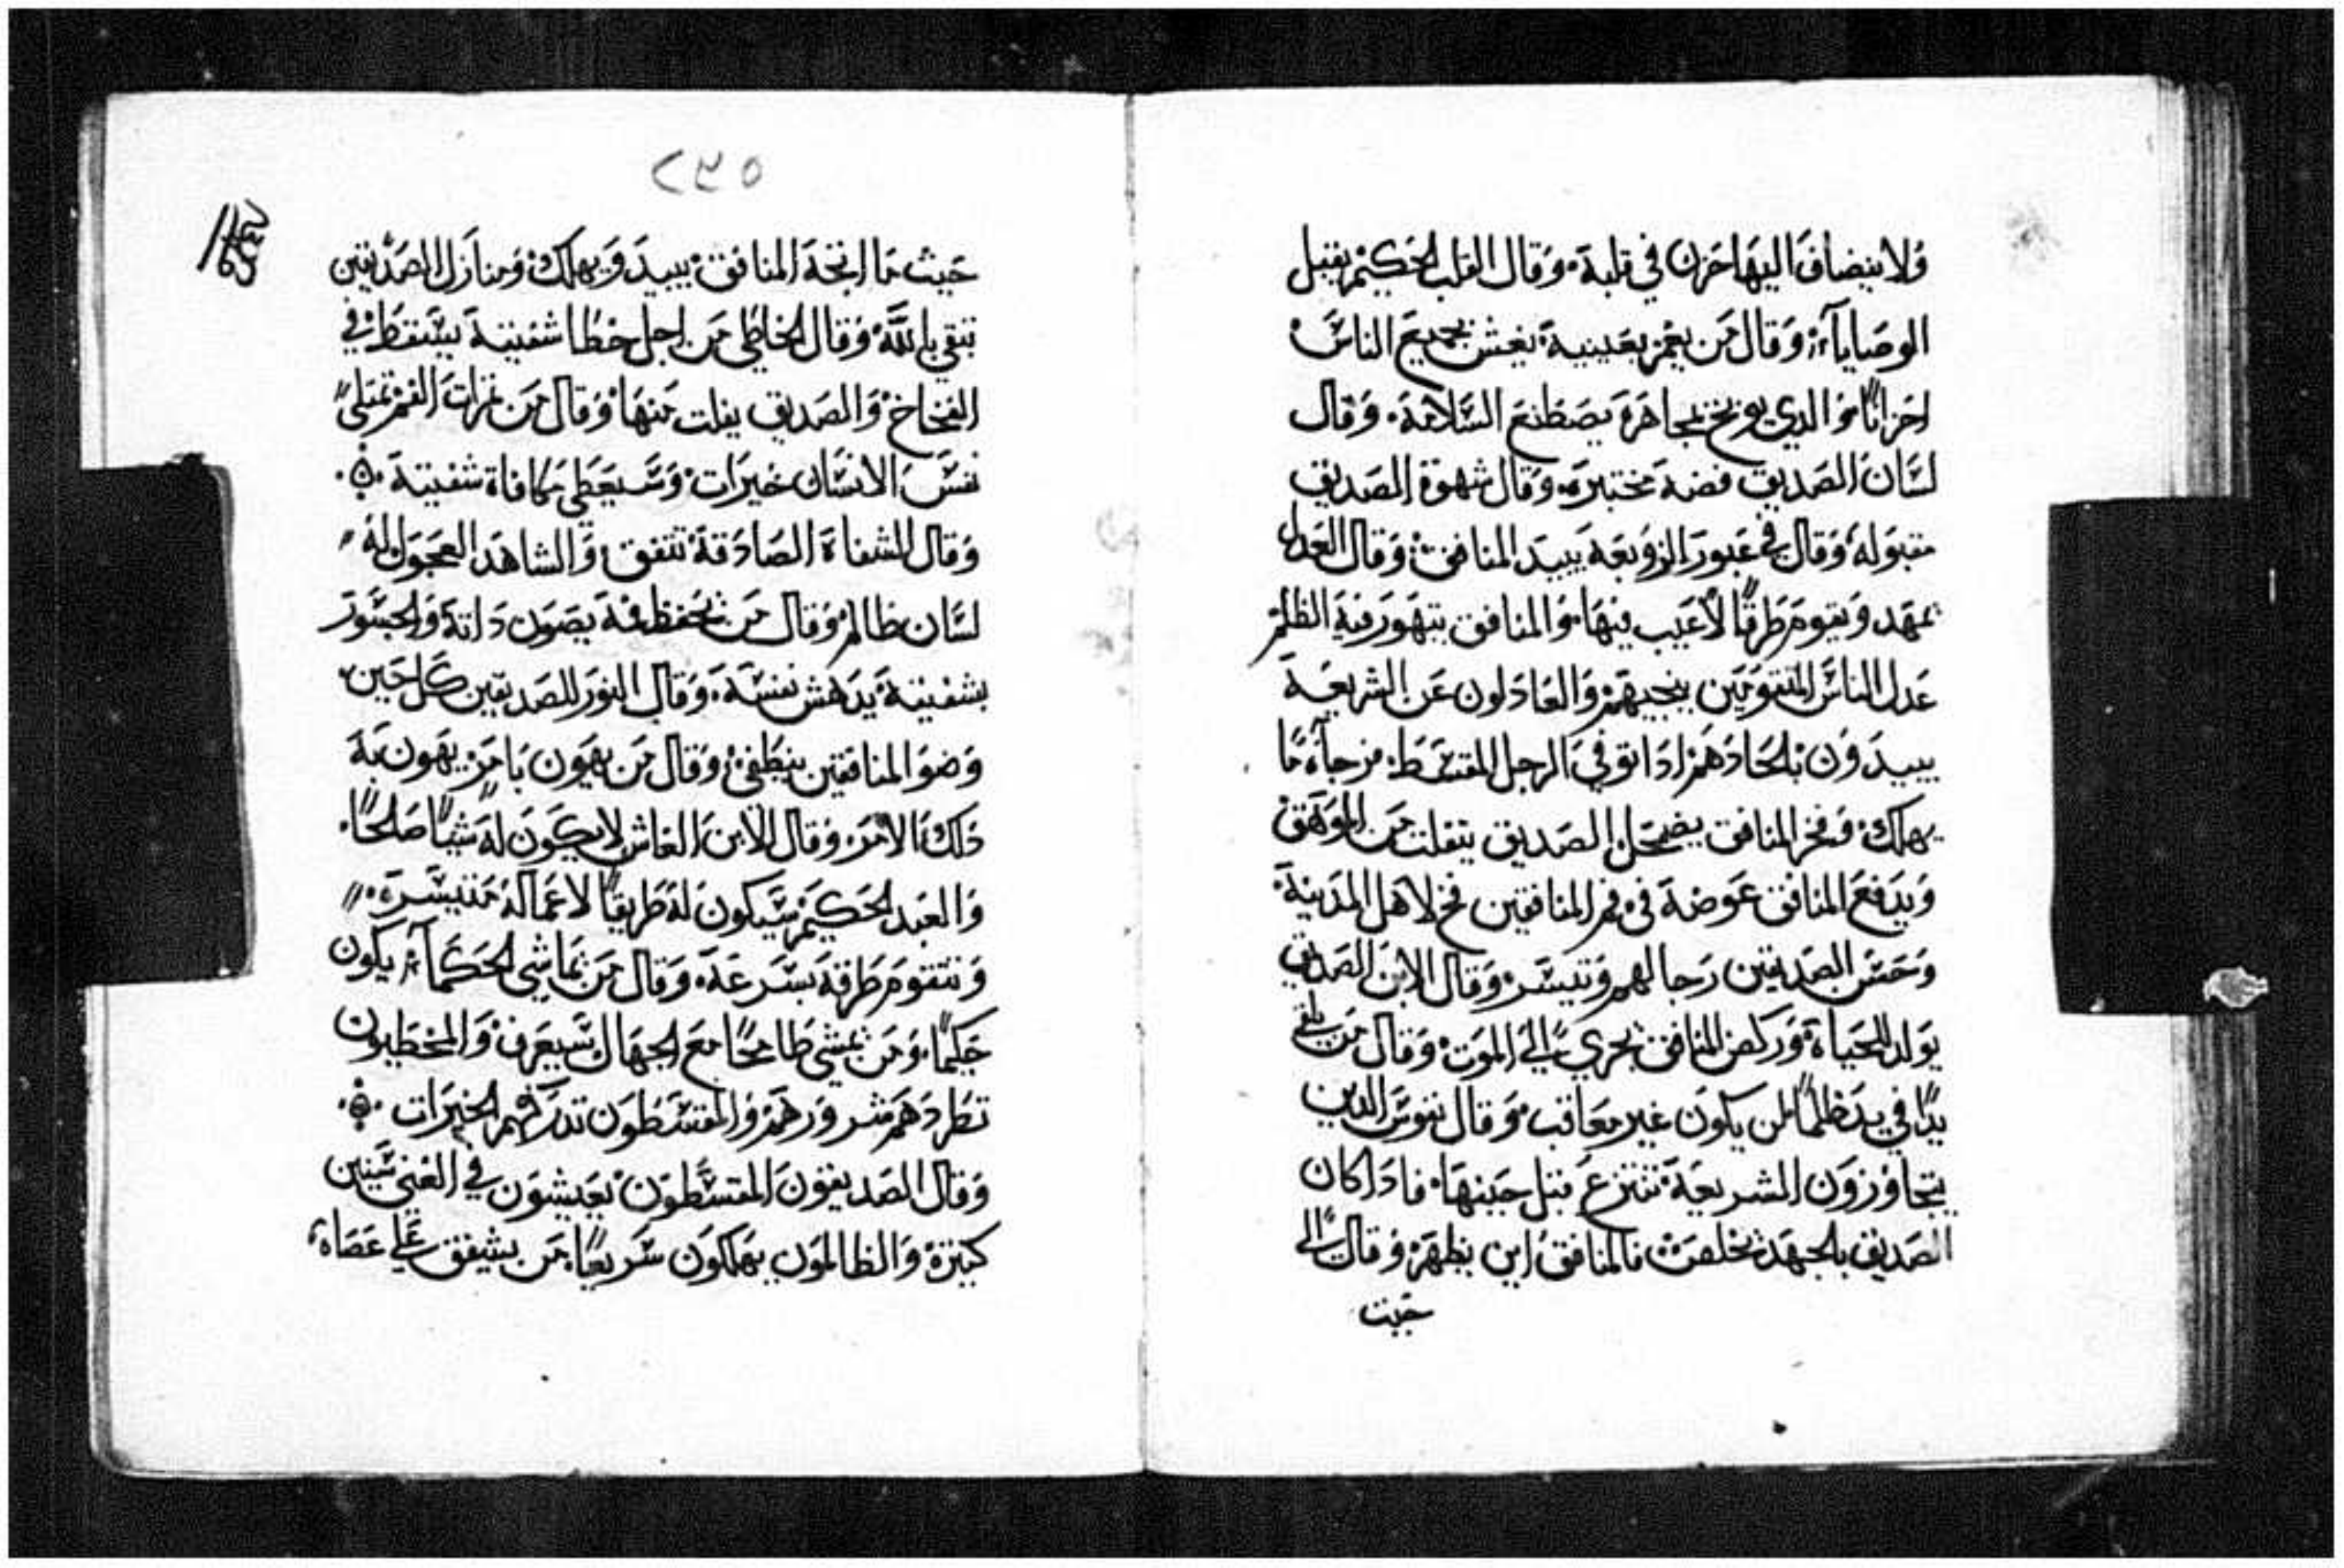 ولا ينضاف اليها حزن في قلبة وقال القلب الحكيم يقبل
الوصاياء وقال من يغمز بعينية يغش بجميع الناس
احزانًا والدي يوبخ بمجاهرة يصطنع السلامة وقال
لسان الصديق فضة مختبرة وقال شهوة الصديق
مقبوله وقال في عبور الزوبعة يبيد المنافق وقال العدل
تمهد ويقوم طرقًا لاعيب فيها والمنافق يتهور فية الظلم
عدل الناس المتقومين ينجيهم والعادلون عن الشريعة
يبيدون بالحادهم ادا توفي الرجل المقتسط من جاه ما
يهلك وفخر المنافق يضمحل الصديق يتفلت من الموهق
ويدفع المنافق عوضة في فم المنافقين فخ لاهل المدينة
وحس الصديقين رجا لهم وتيسر وقال الابن الصديق
يولد للحياة وركض المنافق يجري الى الموت وقال من يلقي
يدًا في يد ظلمًا لن يكون غير معاقب وقال نفوس الدين
يتجاوزون الشريعة تنتزع قبل حينها فادا كان
الصديق بالجهد تخلص فالمنافق اين يظهر وقال الى
حيت
٢٣٥
حيث ما اتجة المنافق يبيد ويهلك ومنازل الصديقين
تبقي بالله وقال الخاطي من اجل خطا شفيتة يستقط في
الفخاخ والصديق يفلت منها وقال من ثمرات الفم تمتلي
نفس الانسان خيرات وسيعطي مكافاة شفيتة
وقال الشفاة الصادقة تتفق والشاهد العجول له
لسان ظالم وقال من يحفظ فة يصون داتة والجسور
بشفيتة يدهش نفسة وقال النور للصديقين كل حين
وضو المنافقين ينطفي وقال من يهون بامر يهون بة
دلك الامر وقال الابن الغاش لا يكون لة شيًا صالحًا
والعبد الحكيم سيكون لة طريقًا لاعمالة متيسرة
وتتقوم طرقة بسرعة وقال من يماشي الحكماء يكون
حكيمًا ومن يمشي طامحًا مع الجهال سيعرف والمخطيون
تطردهم شرورهم والمقتسطون تدركهم الخيرات
وقال الصديقون المقتسطون يعيشون في الغني سنين
كثيرة والظالمون يهلكون سريعًا من يشفق علي عصاة